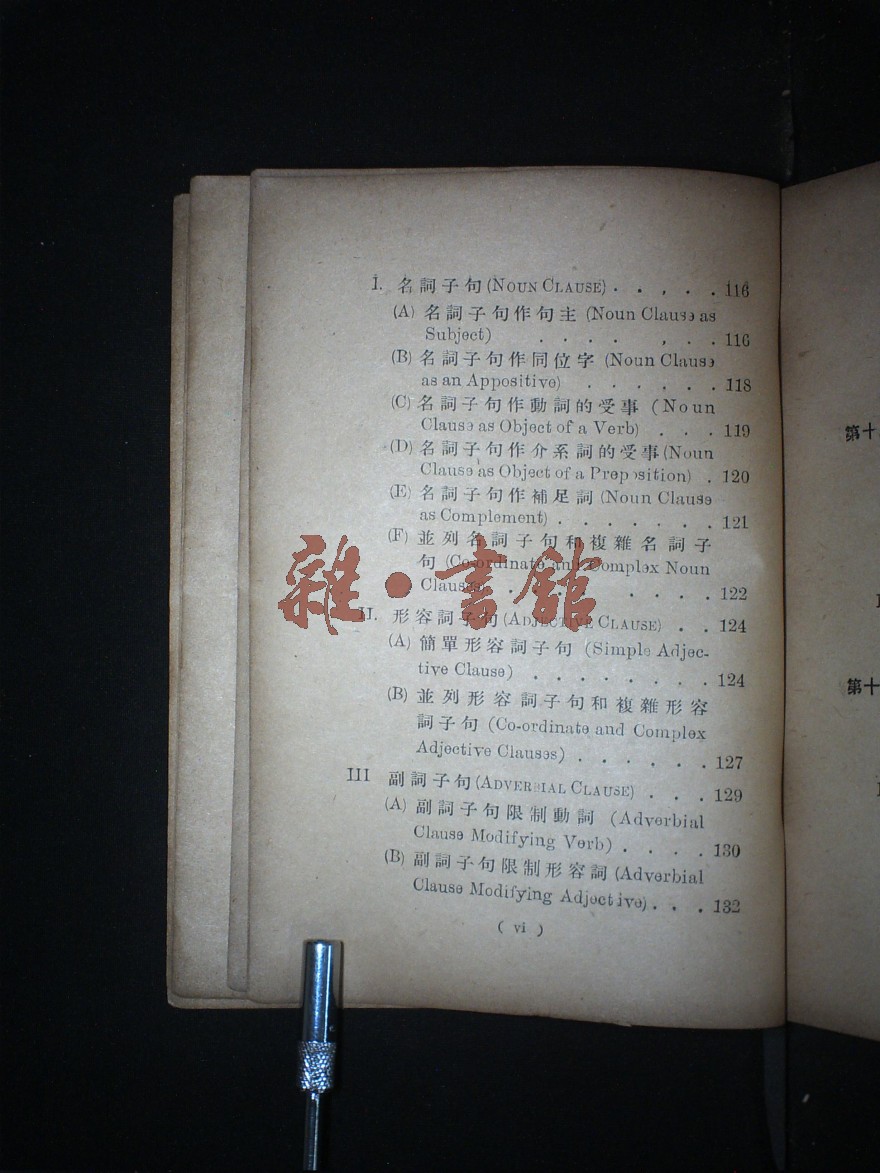 I. 名詞子句 (NOUN CLAUSE) . . . . . 116
(A) 名詞子句作句主 (Noun Clause as
Subject) . . . . . . . 116
(B) 名詞子句作同位字 (Noun Clause
as an Appositive) . . . . . . 118
(C) 名詞子句作動詞的受事 (Noun
Clause as Object of a Verb) . . . 119
(D) 名詞子句作介系詞的受事 (Noun
Clause as Object of a Preposition) . 120
(E) 名詞子句作補足詞 (Noun Clause
as Complement) . . . . . . . 121
(F) 並列名詞子句和複雜名詞子
句 (Co-ordinate and Complex Noun
Clauses) . . . . . . . . 122
II. 形容詞子句 (ADJECTIVE CLAUSE) . . 124
(A) 簡單形容詞子句 (Simple Adjec-
tive Clause) . . . . . . . . 124
(B) 並列形容詞子句和複雜形容
詞子句 (Co-ordinate and Complex
Adjective Clauses) . . . . . . 127
III 副詞子句 (ADVERBIAL CLAUSE) . . . 129
(A) 副詞子句限制動詞 (Adverbial
Clause Modifying Verb) . . . . 130
(B) 副詞子句限制形容詞 (Adverbial
Clause Modifying Adjective) . . . 132
( vi )
雜·書館
第十
第十